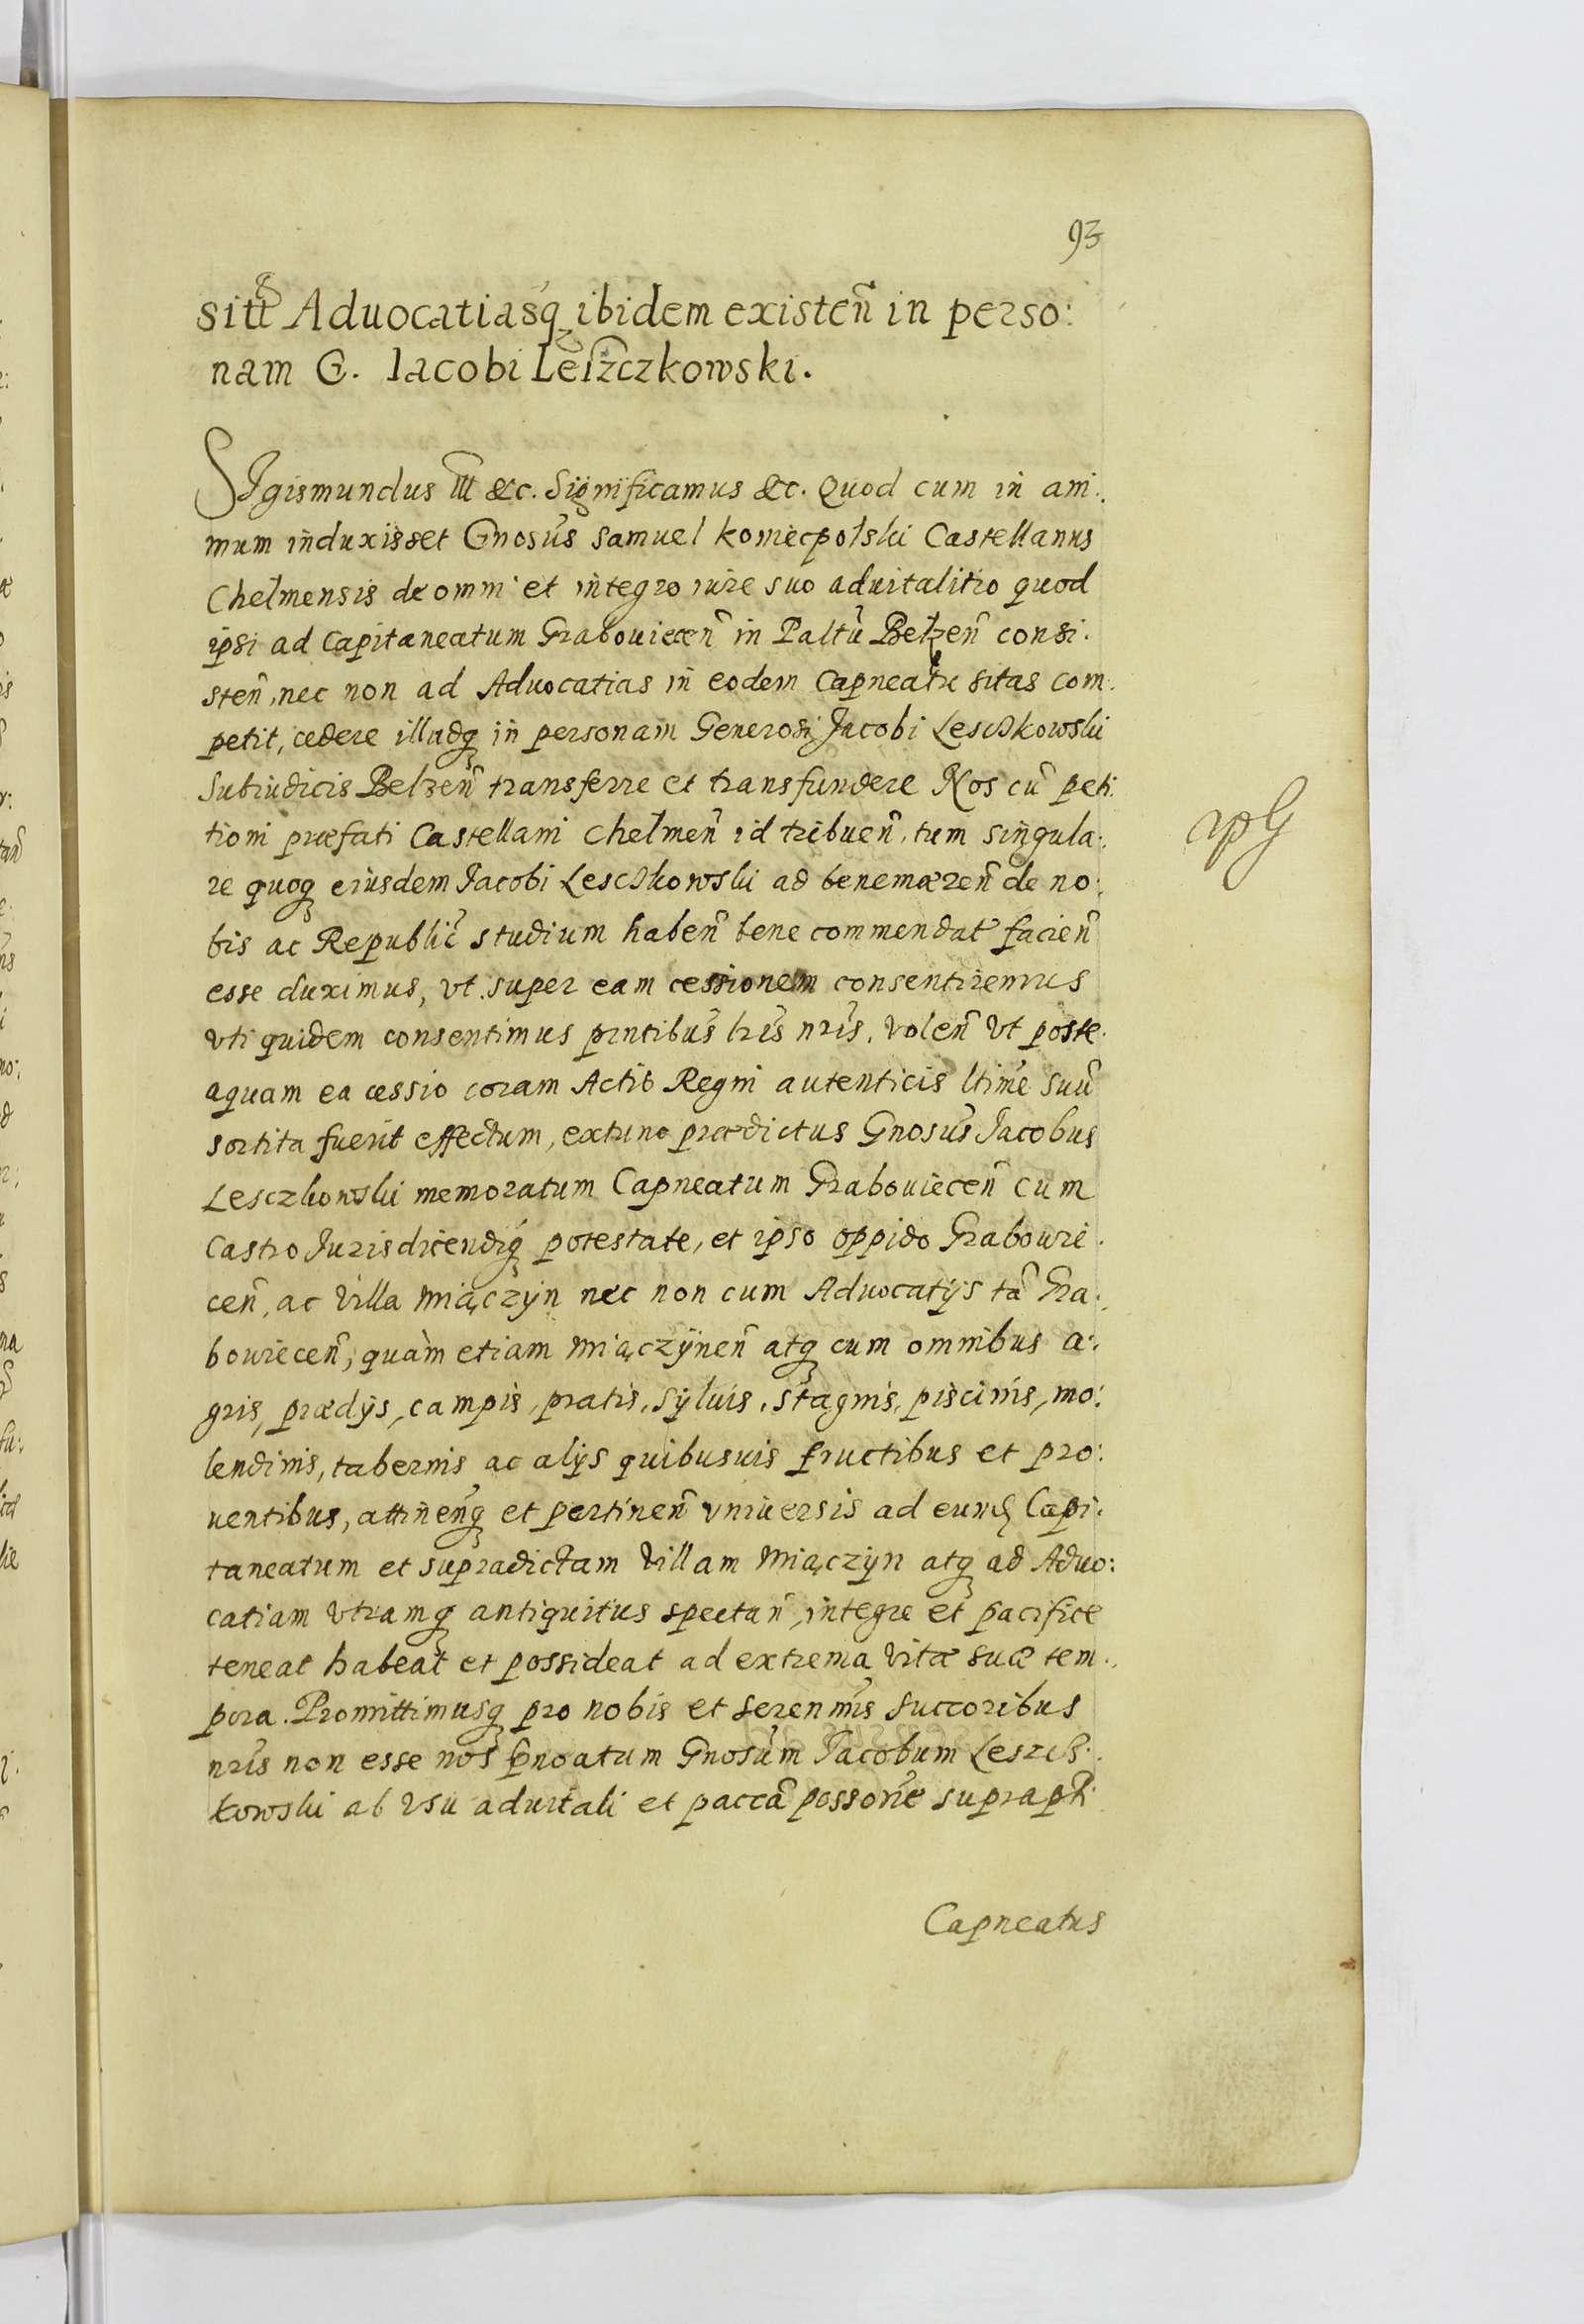 93
sitt Aduocatiasq ibidem existeñ in perso:
nam G. Iacobi Leszczkowski.
SIgismundus III &c. Significamus &c. Quod cum in ani:
mum induxisset Gnosus Samuel koniecpolski Castellanus
Chelmensis de omni et integro iure suo aduitalitio quod
ipsi ad Capitaneatum Grabouieceñ in Paltu Belzeñ consi:
steñ, nec non ad Aduocatias in eodem Capneatu sitas com:
petit, cedere illudq in personam Generosi Jacobi Lesczkowski
Subiudicis Belzeñ transferre et transfundere Nos cu peti:
tioni præfati Castellani Chelmeñ id tribueñ, tum singula:
re quoq eiusdem Jacobi Lesczkowski ad benemæreñ de no:
bis ac Republic studium habeñ bene commendat facieñ
esse duximus, vt super eam cessionem consentiremus
vti quidem consentimus prntibus lris nris, voleñ vt poste:
aquam ea cessio coram Actis Regni autenticis ltime suu
sortita fuerit effectum, extunc prædictus Gnosus Jacobus
Lesczkowski memoratum Capneatum Grabouieceñ cum
Castro Jurisdicendiq potestate, et ipso oppido Grabowie:
ceñ, ac Villa Miączÿn nec non cum Aduocatÿs ta Gra:
bowieceñ, quàm etiam Miączÿneñ atq cum omnibus a:
gris, prædÿs, campis, pratis, Sÿluis, Stagnis, piscinis, mo:
lendinis, tabernis ac alÿs quibusuis fructibus et pro:
uentibus, attineñq et pertineñ vniuersis ad eund Capi:
taneatum et supradictam Villam Miączÿn atq ad Aduo:
catiam vtramq antiquitus spectañ, integre et pacifice
teneat habeat et possideat ad extrema vitæ suæ tem:
pora. Promittimusq pro nobis et serenmis succoribus
nris non esse nos pnoatum Gnosum Jacobum Leszcz:
kowski ab vsu aduitali et pacca possone suprapti
Capneatus